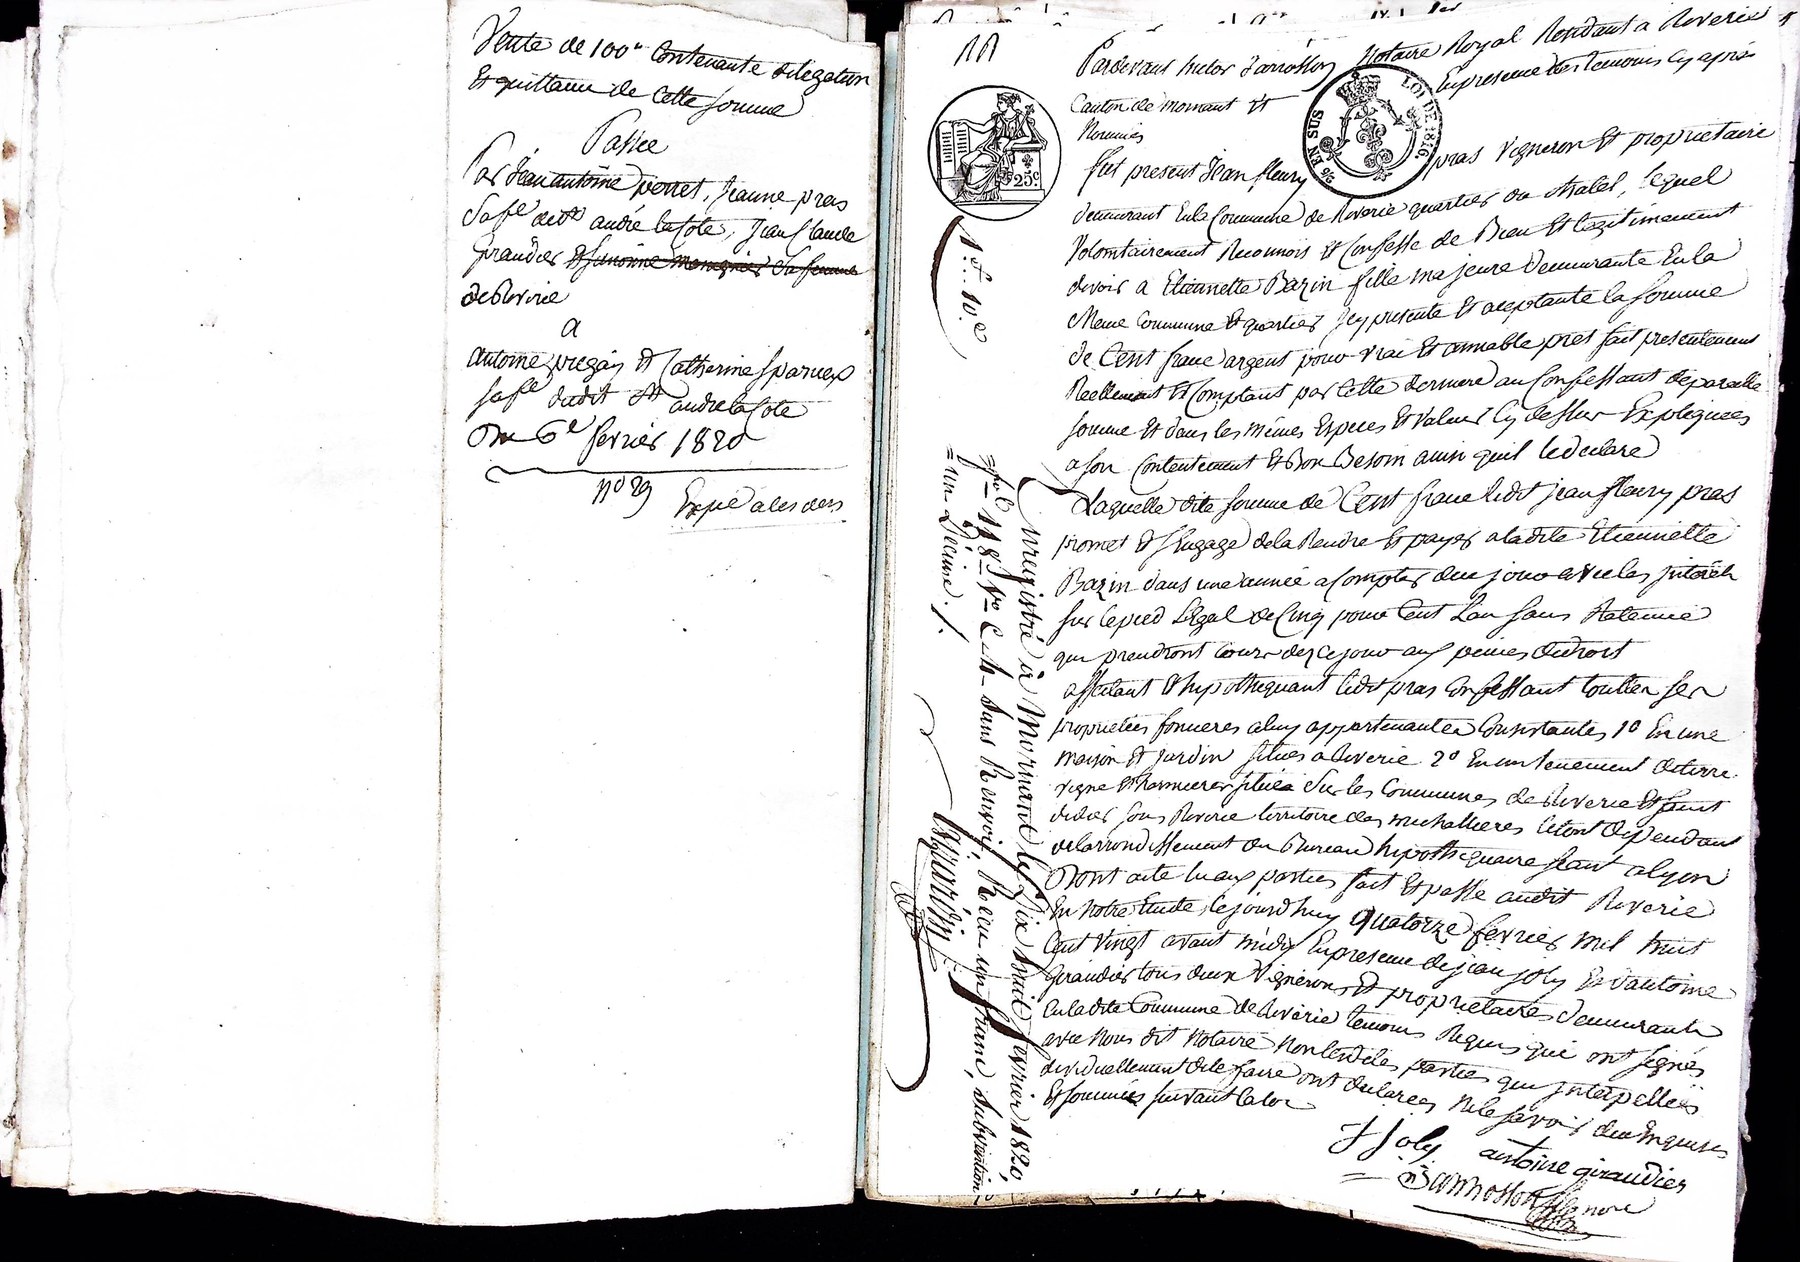 Vente de 100" Contenante delegation
Et quittance de Cette somme
Passée
Par Jean antoine perret, Jeanne pras
Sa fe de St andré la Cote, Jean Claude
Giraudier Et
de Riverie
a
antoine et Catherine
sa fe dudit St andre la Cote
Du 6e fevrier 1820
no 29
Expié a les ders
Pardevant victor Jarrosson Notaire Royal Residant a Riverie
Canton de mornant Et En presence des temoins Cy après
Nommés
25c.
EN SUS
LOI DE 1816.
fut present Jean fleury pras vigneron Et propriétaire
demeurant En la Commune de Riverie quartier du Lequel
Volontairement Reconnois et Confesse de Bien Et legitimement
devoir a Etiennette Bazin fille majeure demeurante En la
Meme Commune Et quartier Icy presente Et aceptante la somme
de Cent franc argent pour vrai Et amiable pret fait presentement
Reellement Et Comptant par Cette derniere au Confessant de pareille
somme Et dans les mêmes Especes Et valeur Cy dessus Expliquées
a son Contentement Et Bon Besoin ainsi quil le declare
Laquelle dite somme de Cent franc ledit jean fleury pras
promet Et s'Engage de la Rendre Et payer a ladite Etiennette
Bazin dans une année a Compter de ce jour avec les Interets
sur le pied Legal de Cinq pour Cent L'an sans Retenue
qui prendront Cours dez ce jour aux peines de droit
affectant Et hypothequant ledit pras Confessant toutes ses
proprietées foncieres a luy appartenantes Consistantes 1o En une
maison Et Jardin situés a Riverie 2o En un tenement de terre
vigne Et situés sur les Communes de Riverie Et saint
didier sous Riverie territoire des le tout dependant
de larrondissement du Bureau hypothequaire seant a lyon
Dont acte lu aux parties fait Et passé audit Riverie
En notre Etude, le jourd'huy quatorze fevrier mil huit
Cent vingt avant midy En presence de jean joly Et d'antoine
Giraudier tous deux vignerons Et proprietaires demeurants
En ladite Commune de Riverie temoins Requis qui ont signés
avec Nous dit Notaire Non lesdites parties qui Interpellées
dividuellement de le faire ont declarées ne le savoir de ce Enquises
Et sommées suivant la loi
J Joly antoine giraudier
Jarrosson
1f. 10.c
Enregistré à Mornant le dix huit fevrier 1820,
fo 118 Ro C. 4 sans Renvoi, Recu un franc, subvention,
= un Décime ./.